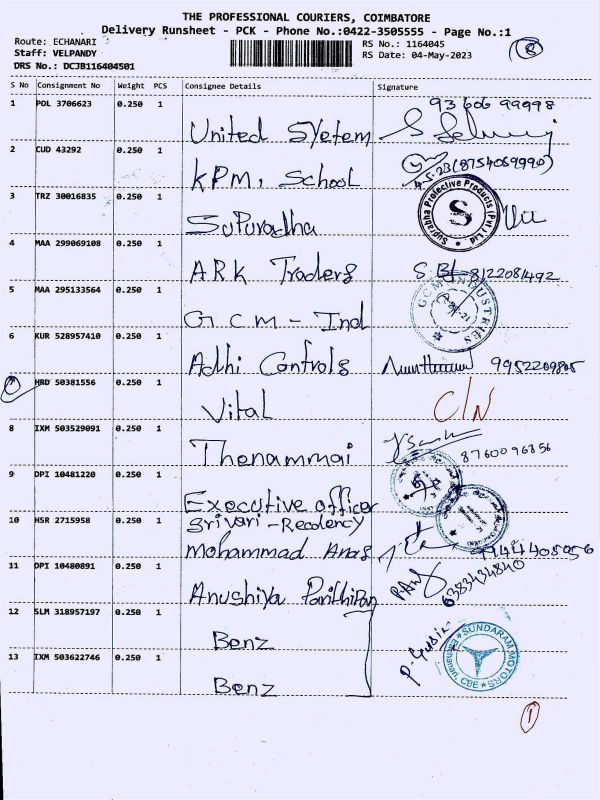 THE PROFESSIONAL COURIERS, COIMBATORE
Delivery Runsheet - PCK - Phone No.:0422-3505555 - Page No.:1
Route: ECHANARI
RS No.: 1164045
8
Staff: VELPANDY
RS Date: 04-May-2023
DRS No.: DCJB116404501
S No Consignment No Weight PCS Consignee Details Signature
1 POL 3706623 0.250 1 United System 93606 99998
2 CUD 43292 0.250 1 KPM, School 4.5.23 (8754089990)
3 TRZ 30016835 0.250 1 SuPuradha
Suprabha Protective Products (Pvt.) Ltd
S
4 MAA 299069108 0.250 1 ARK Traders 8122081492
5 MAA 295133564 0.250 1 G.C.M - Ind
GCM INDUSTRIES
6 KUR 528957410 0.250 1 Adhi Controls 9952209805
7 HRD 50381556 0.250 1 Vital C/N
8 IXM 503529091 0.250 1 Thenammai 8760096356
9 DPI 10481220 0.250 1 Executive officer
10 HSR 2715958 0.250 1 Srivari - Recdency
Mohammad Anas 9944405056
11 DPI 10480891 0.250 1 Anushiya Parithipan 6383434840
12 SLM 318957197 0.250 1 Benz
SUNDARAM MOTORS
Eachanari, CBE
13 IXM 503622746 0.250 1 Benz
1